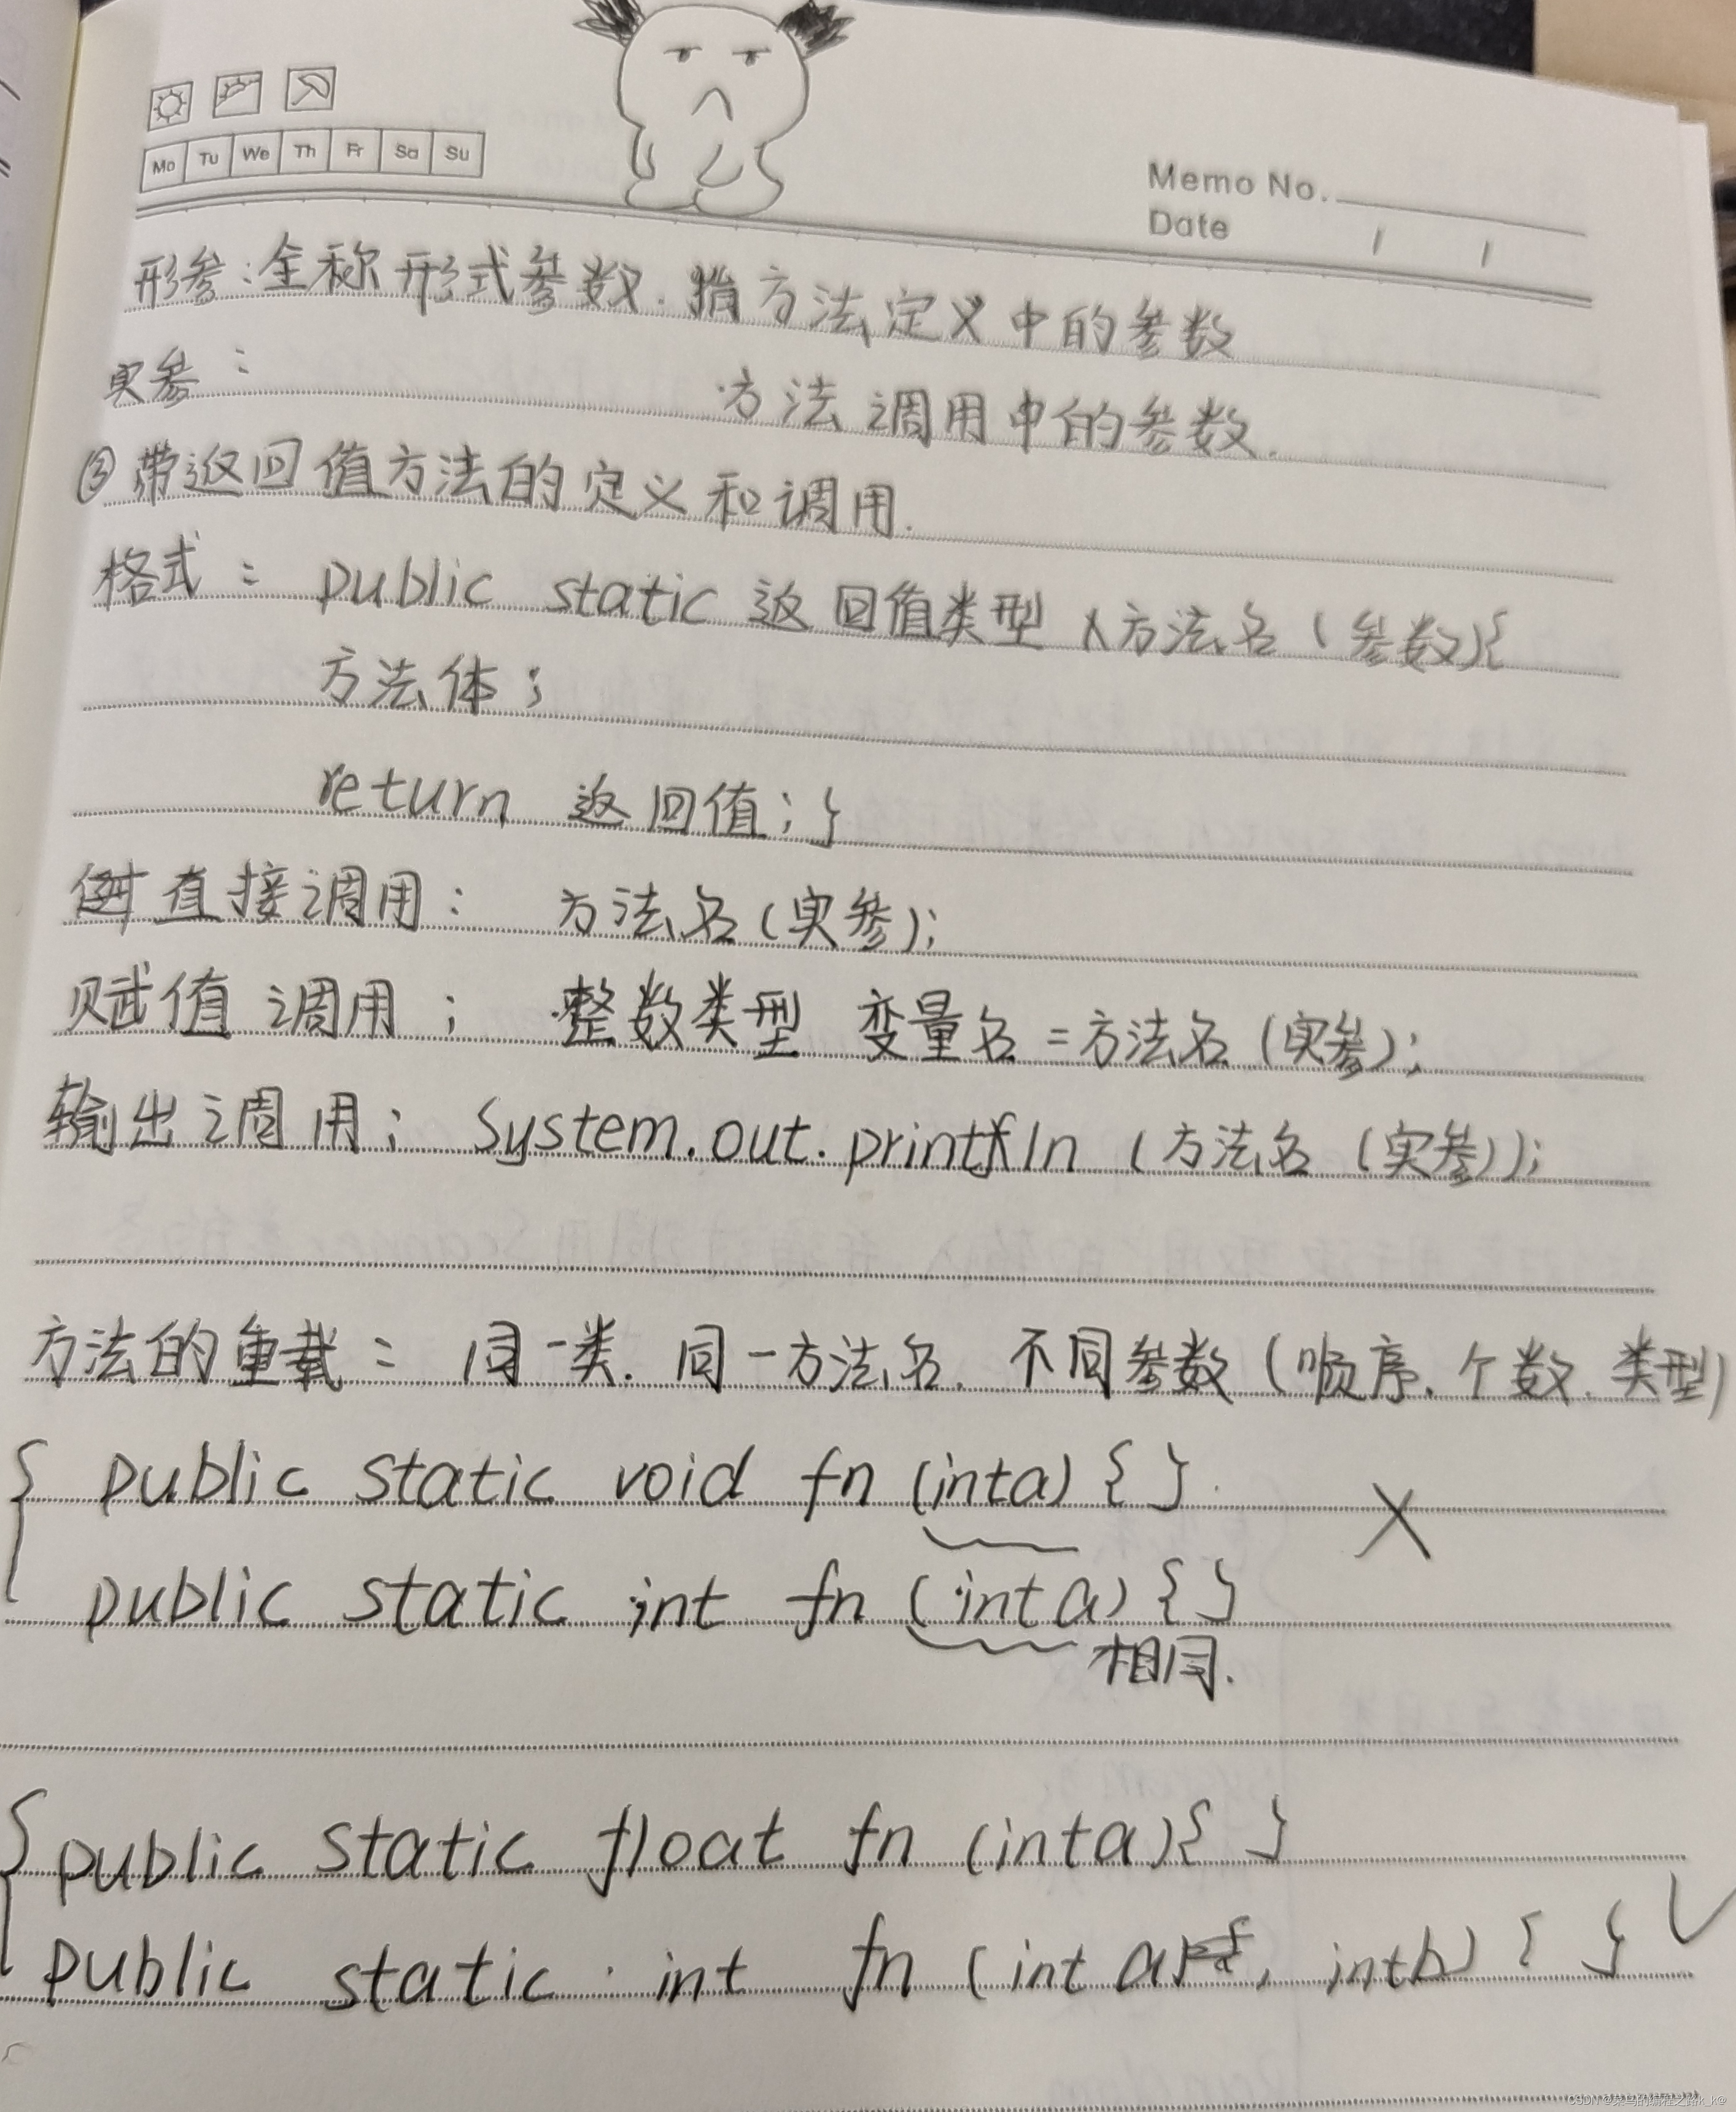 Mo Tu We Th Fr Sa Su
Memo No.
Date / /
形参:全称形式参数.指方法定义中的参数
实参: 方法调用中的参数.
③带返回值方法的定义和调用.
格式: public static 返回值类型 方法名(参数){
方法体;
return 返回值;}
直接调用: 方法名(实参);
赋值调用; 整数类型 变量名=方法名(实参);
输出调用; System.out.println (方法名(实参));
方法的重载: 同一类.同一方法名.不同参数(顺序、个数.类型)
{ public static void fn (int a) { }. X
public static int fn (int a) { }
相同.
{ public static float fn (int a){ }
public static int fn (int a, int b) { } √
CSDN @菜鸟的编程之路k_k@